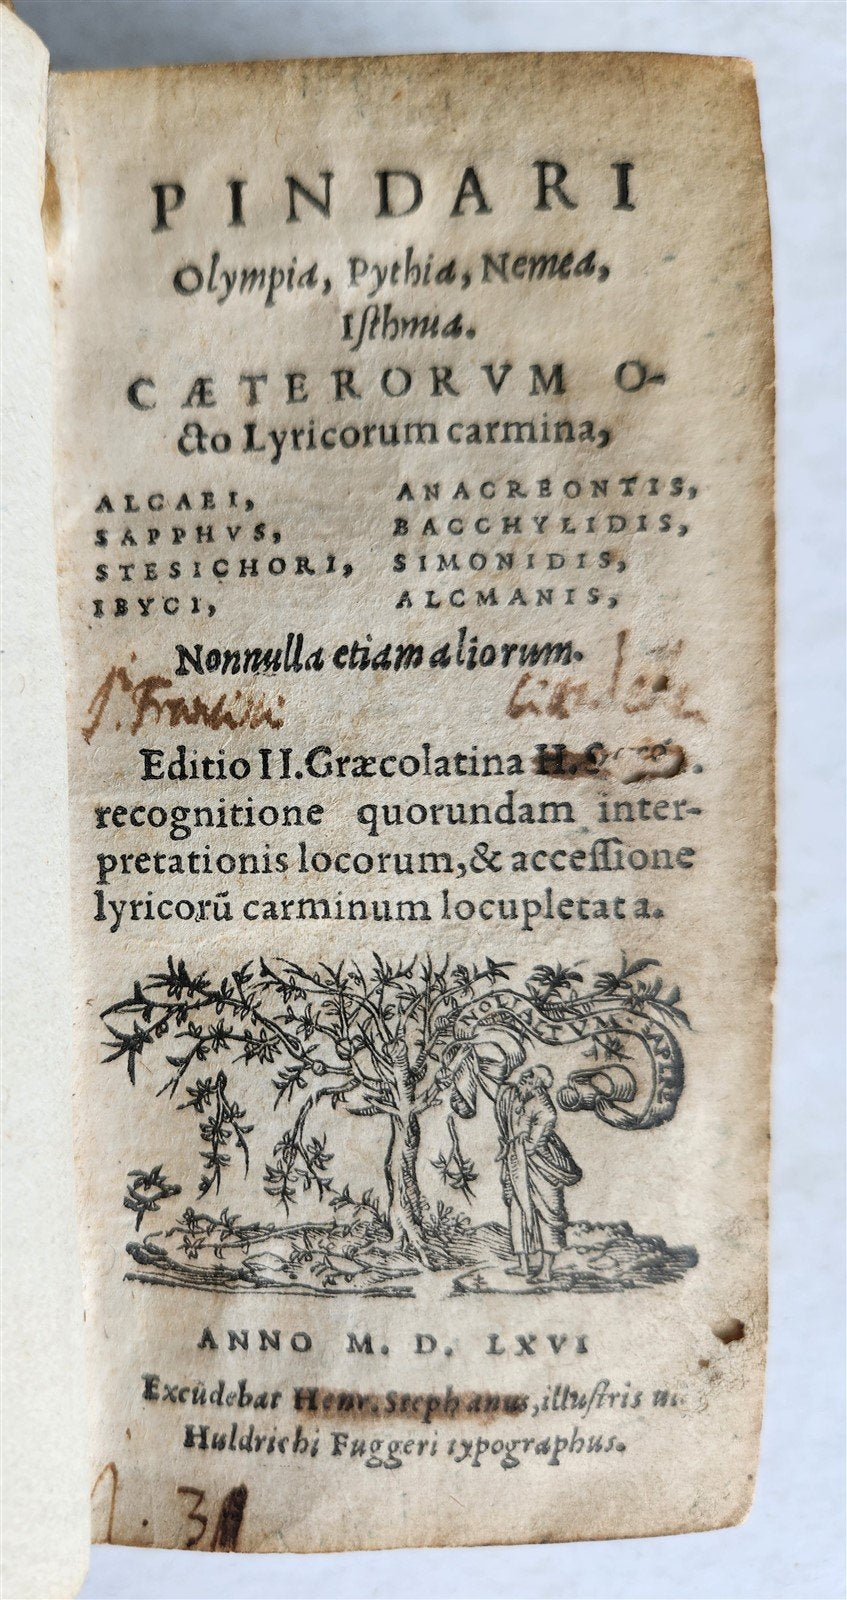 PINDARI
Olympia, Pythia, Nemea,
Iſthmia.
CÆTERORVM O-
cto Lyricorum carmina,
ALCAEI, ANACREONTIS,
SAPPHVS, BACCHYLIDIS,
STESICHORI, SIMONIDIS,
IBYCI, ALCMANIS,
Nonnulla etiam aliorum.
Editio II. Græcolatina H.
recognitione quorundam inter-
pretationis locorum, & acceſſione
lyricorū carminum locupletata.
NOLI ALTVM SAPERE
ANNO M. D. LXVI
Excūdebat Henr. Stephanus, illuſtris
Huldrichi Fuggeri typographus.
31